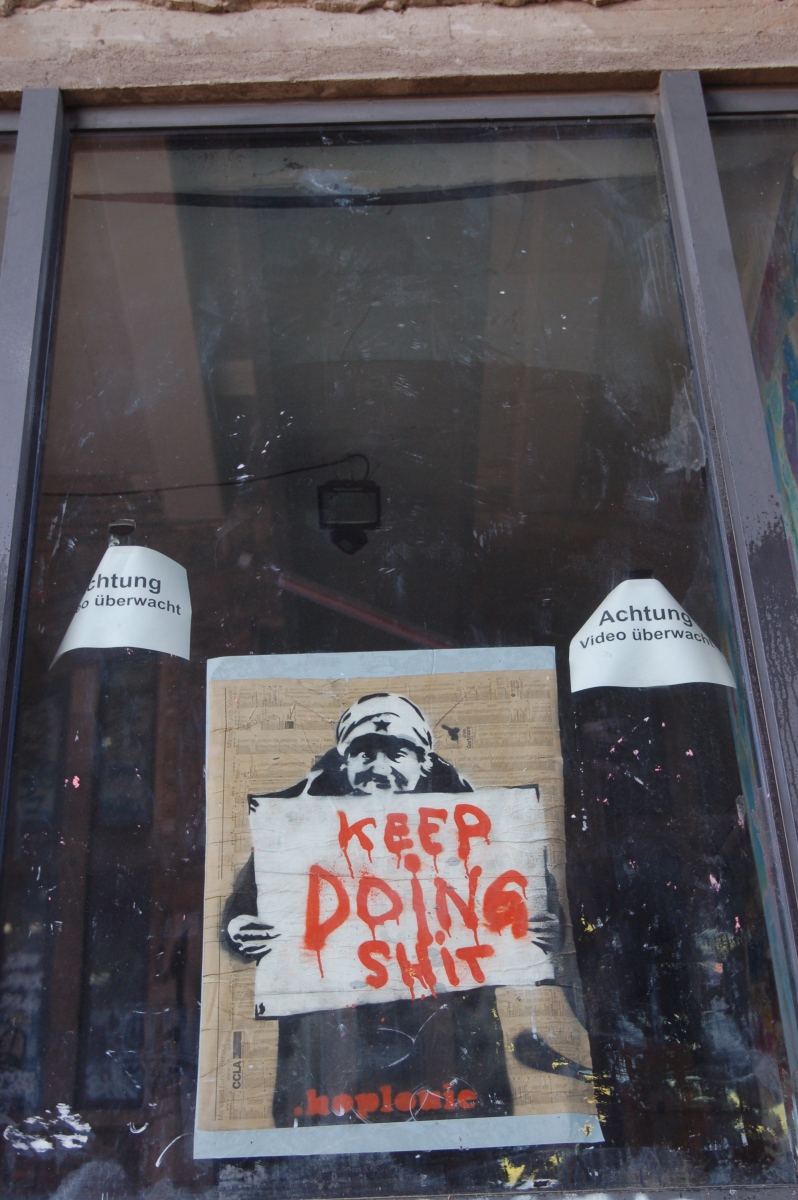 chtung
o überwacht
Achtung
Video überwach
KEEP
DOING
SHIT
CCLA
.hoplouie